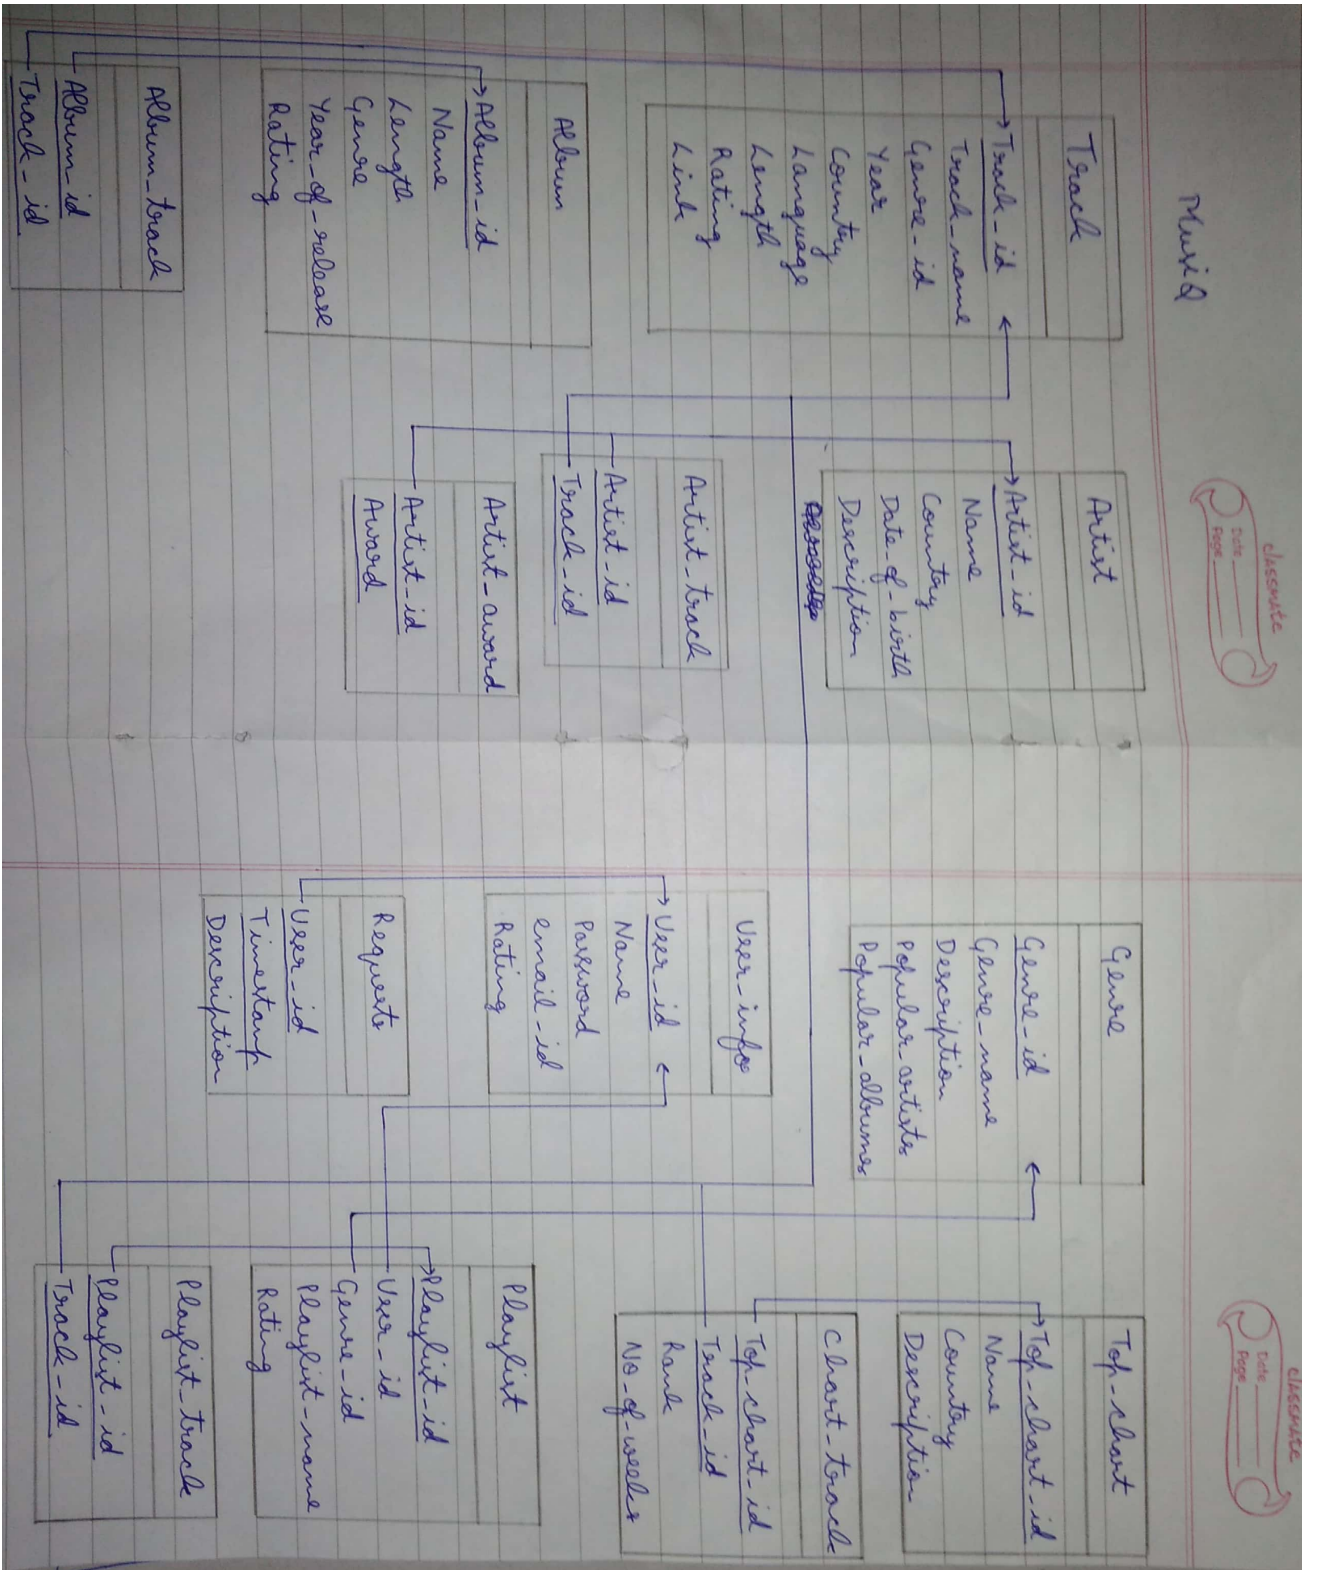 MusiQ
classmate
Date
Page
Track
Track_id
Track_name
Genre_id
Year
Country
Language
Length
Rating
Link
Album
Album_id
Name
Length
Genre
Year_of_release
Rating
Album_track
Album_id
Track_id
Artist
Artist_id
Name
Country
Date_of_birth
Description
Artist_track
Artist_id
Track_id
Artist_award
Artist_id
Award
Genre
Genre_id
Genre_name
Description
Popular_artists
Popular_albums
User_info
User_id
Name
Password
email_id
Rating
Requests
User_id
Timestamp
Description
classmate
Date
Page
Top_chart
Top_chart_id
Name
Country
Description
Chart_track
Top_chart_id
Track_id
Rank
No_of_weeks
Playlist
Playlist_id
User_id
Genre_id
Playlist_name
Rating
Playlist_track
Playlist_id
Track_id